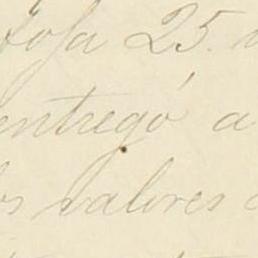 foja 25.
entregó a
os valores